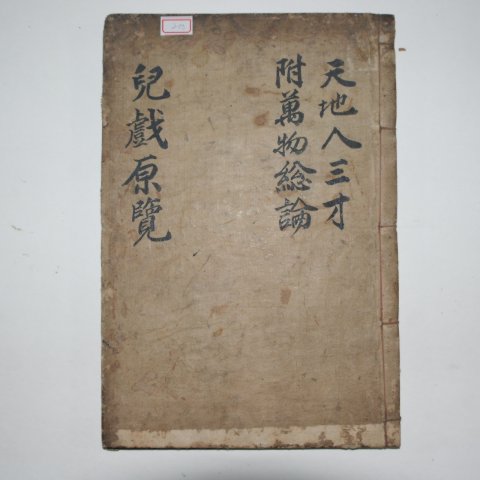 天地人三才
附萬物総論
兒戲原覽